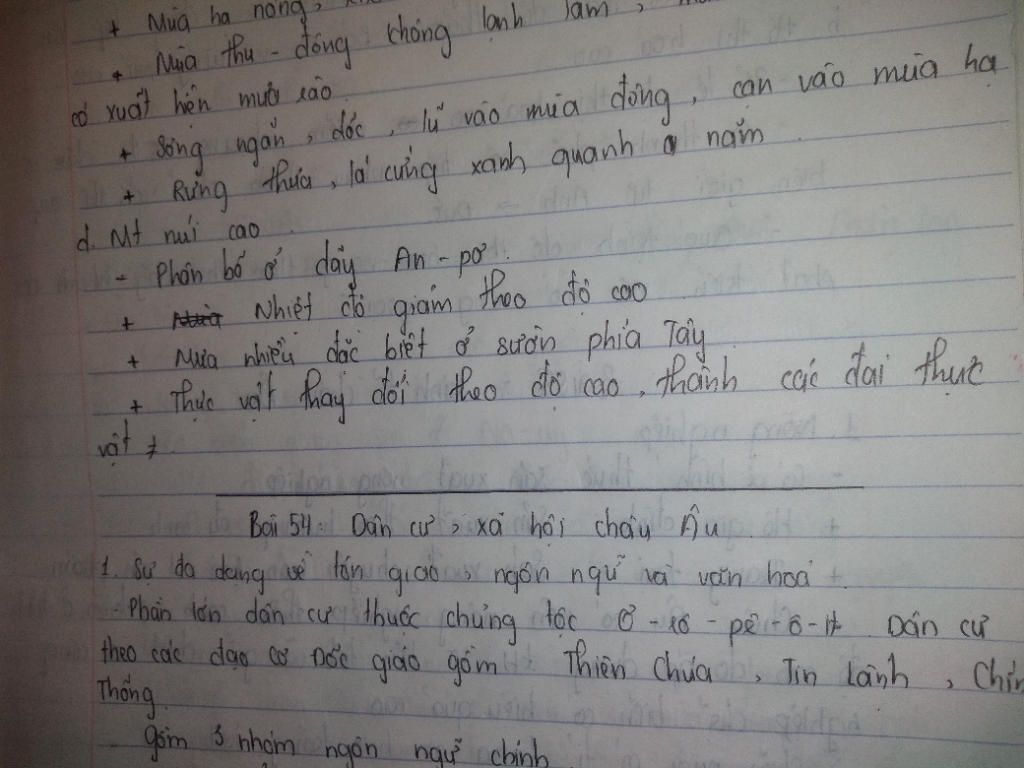 + Mùa hạ nóng,
+ Mùa thu - đông không lạnh lắm,
có xuất hiện mưa rào
+ Sông ngắn, dốc, lũ vào mùa đông, cạn vào mùa hạ
+ Rừng thưa, lá cứng xanh quanh năm
d. Mt núi cao
- Phân bố ở dãy An-pơ.
+ Nhiệt độ giảm theo độ cao
+ Mưa nhiều đặc biệt ở sườn phía Tây
+ Thực vật thay đổi theo độ cao, thành các đai thực
vật ≠
Bài 54: Dân cư, xã hội châu Âu
1. Sự đa dạng về tôn giáo, ngôn ngữ và văn hoá
Phần lớn dân cư thuộc chủng tộc Ơ-rô-pê-ô-it. Dân cư
theo các đạo cơ Đốc giáo gồm Thiên Chúa, Tin Lành,
Thống.
gồm 3 nhóm ngôn ngữ chính